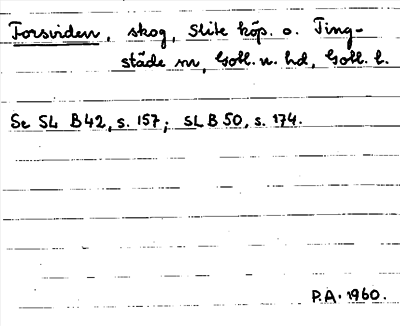 Forsviden, skog, Slite köp. o. Ting-
städe sn, Gotl. n. hd, Gotl. l.
Se SL B42, s. 157; SL B 50, s. 174.
P.A. 1960.